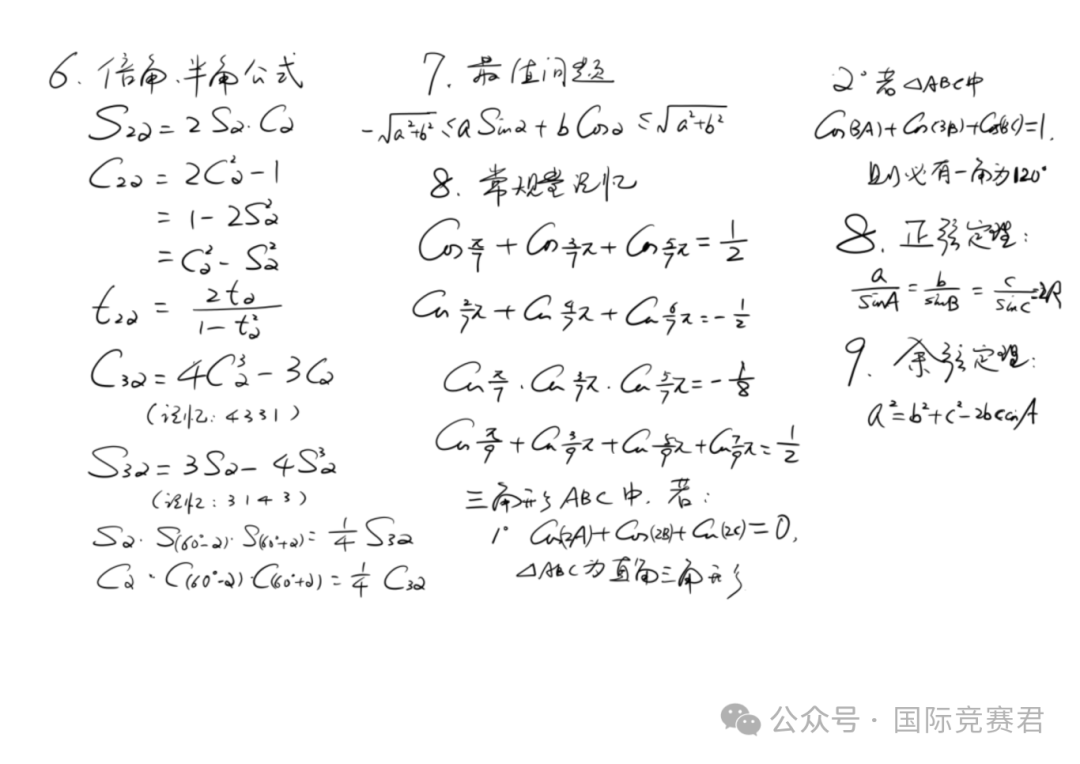 6. 倍角、半角公式
S₂α = 2Sα·Cα
C₂α = 2C²α - 1
= 1 - 2S²α
= C²α - S²α
t₂α = 2tα / (1 - t²α)
C₃α = 4C³α - 3Cα
(记忆: 4331)
S₃α = 3Sα - 4S³α
(记忆: 3143)
Sα · S(60°-α) · S(60°+α) = 1/4 S₃α
Cα · C(60°-α) · C(60°+α) = 1/4 C₃α
7. 最值问题
-√(a²+b²) ≤ a Sinα + b Cosα ≤ √(a²+b²)
8. 常规量记忆
Cos π/7 + Cos 3/7π + Cos 5/7π = 1/2
Cos 2/7π + Cos 4/7π + Cos 6/7π = -1/2
Cos π/7 · Cos 3/7π · Cos 5/7π = -1/8
Cos π/9 + Cos 3/9π + Cos 5/9π + Cos 7/9π = 1/2
三角形ABC中, 若:
1° Cos(2A) + Cos(2B) + Cos(2C) = 0,
△ABC为直角三角形
2° 若△ABC中
Cos(3A) + Cos(3B) + Cos(3C) = 1.
则必有一角为120°
8. 正弦定理:
a/sinA = b/sinB = c/sinC = 2R
9. 余弦定理:
a² = b² + c² - 2bc cosA
公众号 · 国际竞赛君